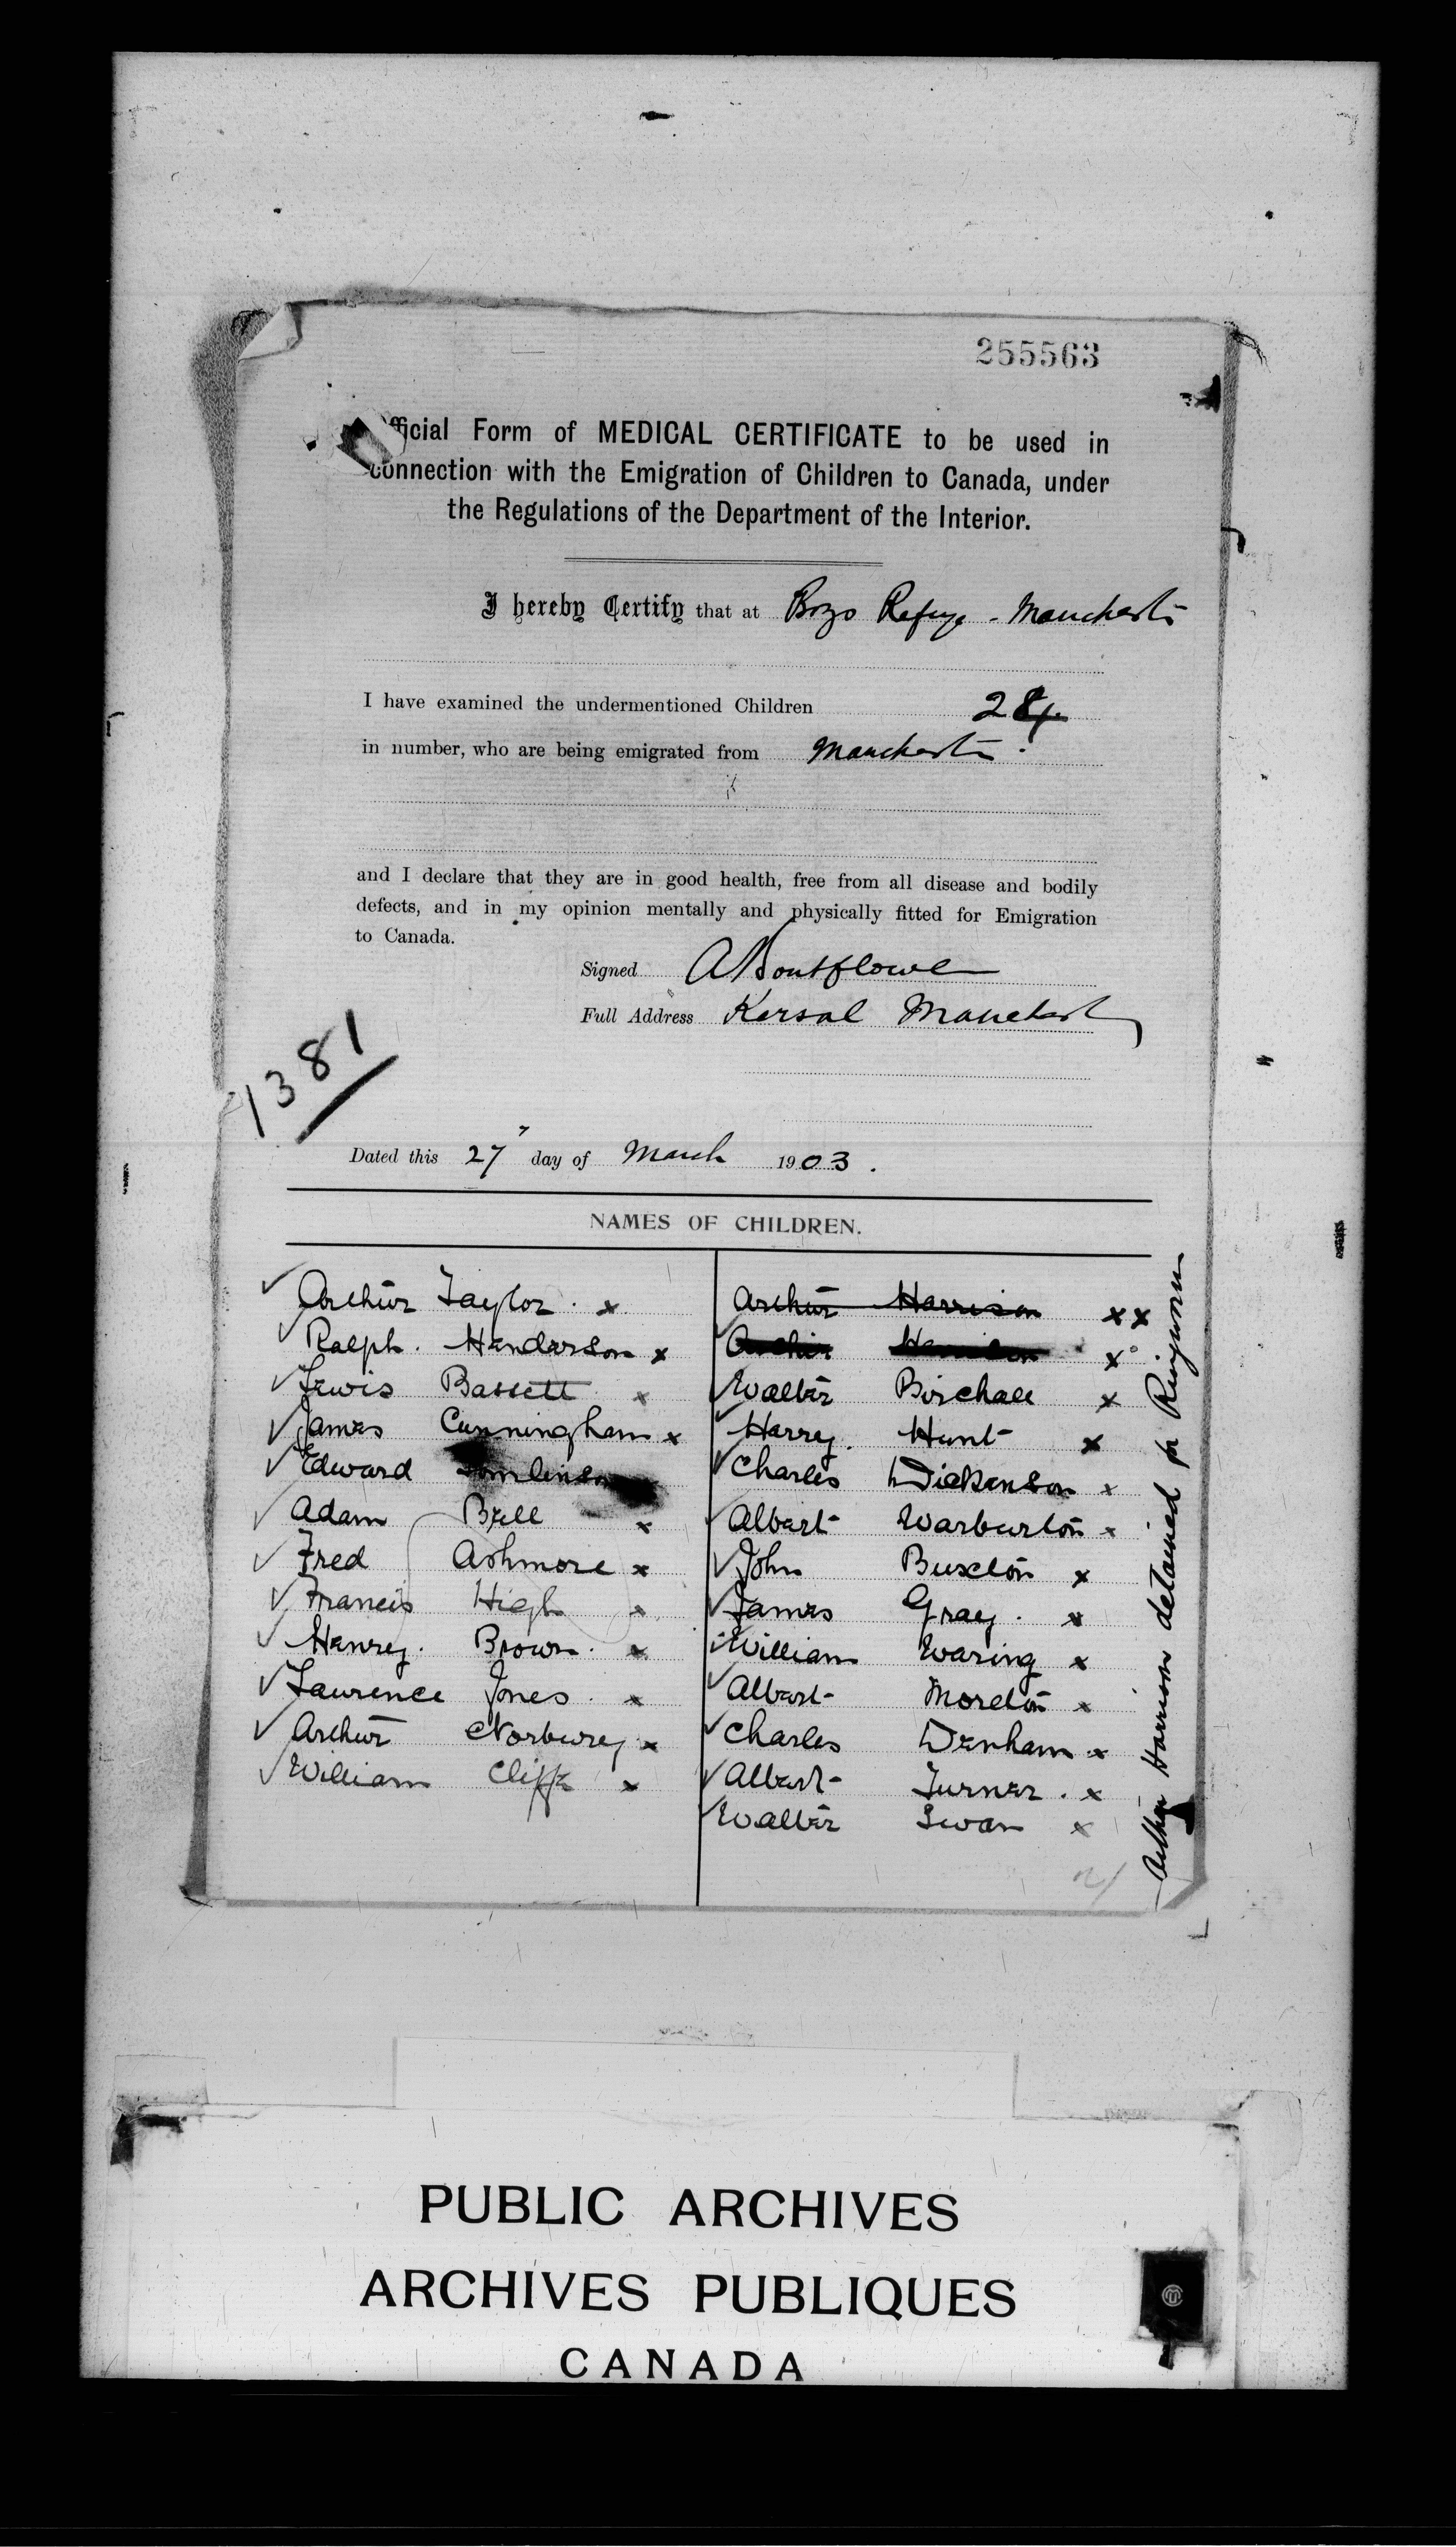 255563
Official Form of MEDICAL CERTIFICATE to be used in
connection with the Emigration of Children to Canada, under
the Regulations of the Department of the Interior.
I hereby Certify that at Boys Refuge - Manchester
I have examined the undermentioned Children 24
in number, who are being emigrated from Manchester.
and I declare that they are in good health, free from all disease and bodily
defects, and in my opinion mentally and physically fitted for Emigration
to Canada.
Signed A Boutflower
Full Address Kersal Manchester
1381
Dated this 27 day of March 1903.
NAMES OF CHILDREN.
✓ Arthur Taylor. x
✓ Ralph. Henderson x
✓ Lewis Bassett x
✓ James Cunningham x
✓ Edward Tomlinson
✓ Adam Bell x
✓ Fred Ashmore x
✓ Francis High x
✓ Henry. Brown. x
✓ Laurence Jones. x
✓ Arthur Norbury x
✓ William Cliffe x
Arthur Harrison xx
✓ x
✓ Walter Birchall x
✓ Harry. Hunt x
✓ Charles Dickenson x
✓ Albert Warburton x
✓ John Buxton x
✓ James Gray. x
✓ William Waring x
✓ Albert Moreton x
✓ Charles Denham x
✓ Albert Turner. x
✓ Walter Swan x
Arthur Harrison detained for Ringworm
PUBLIC ARCHIVES
ARCHIVES PUBLIQUES
CANADA